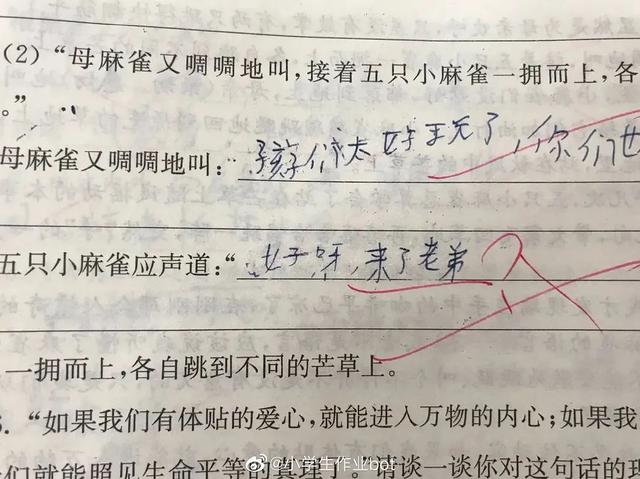 (2)“母麻雀又啁啁地叫,接着五只小麻雀一拥而上,各
。”
母麻雀又啁啁地叫:孩子们太好玩了,你们也
五只小麻雀应声道:“好呀,来了老弟
一拥而上,各自跳到不同的芒草上。
. “如果我们有体贴的爱心,就能进入万物的内心;如果我
们就能照见生命平等的真理了。”请谈一谈你对这句话的理
@小学生作业bot